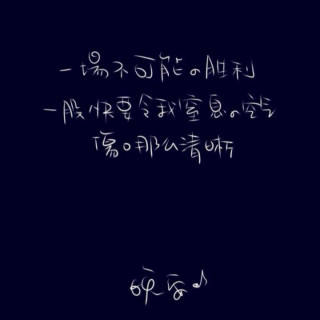 一場不可能の胜利
一股快要令我窒息の空气
傷の那么清晰
晚安♪